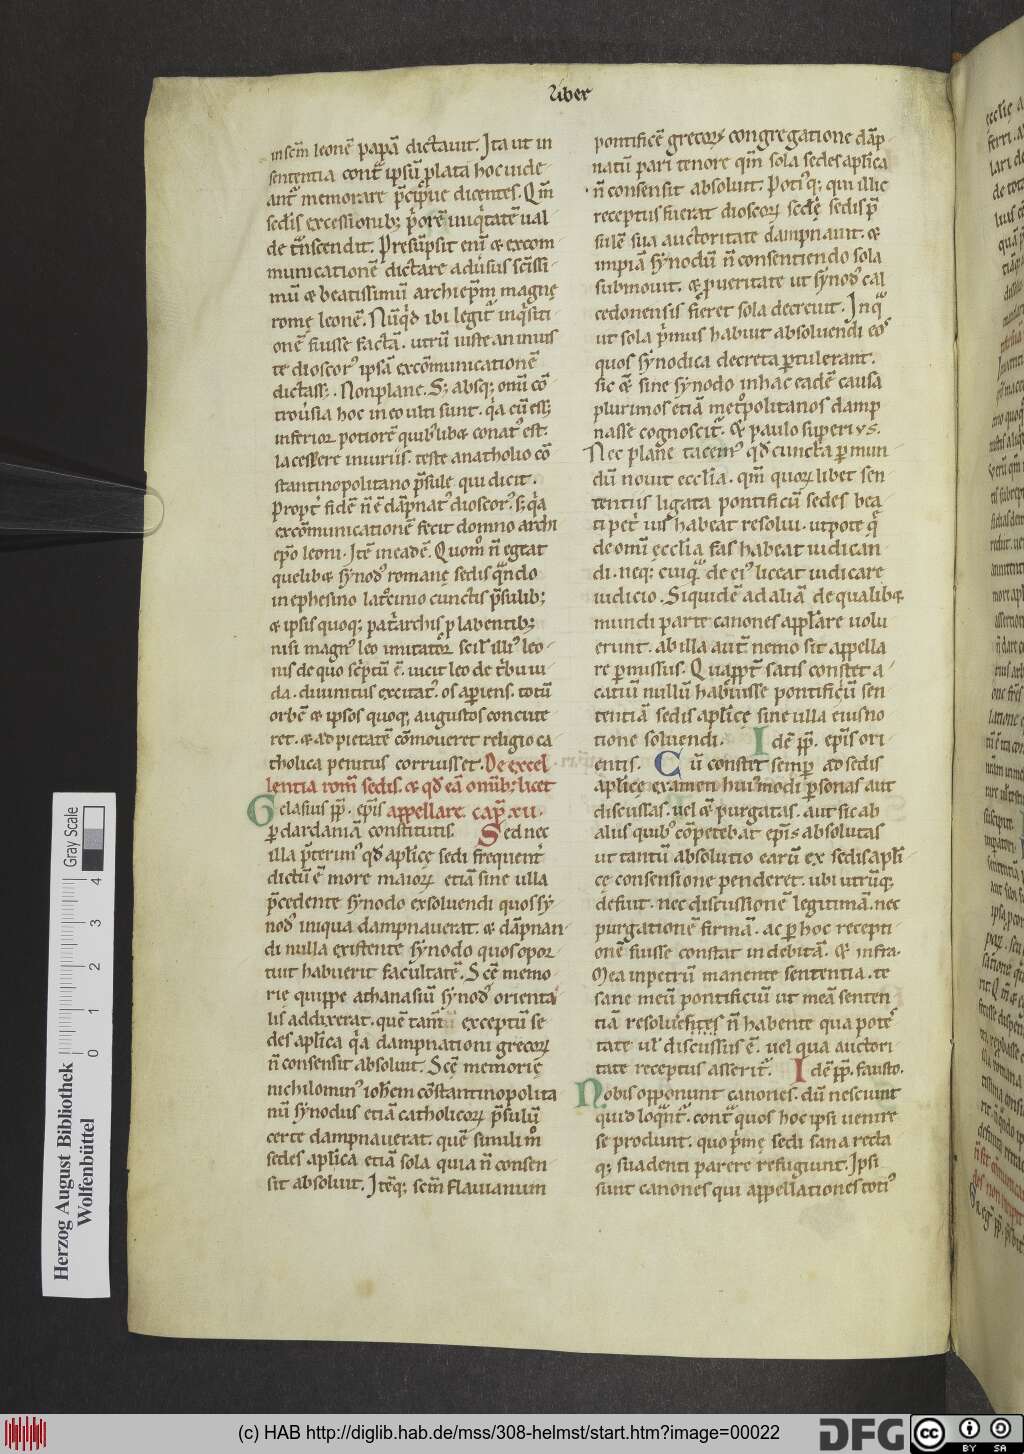 Liber
in scm̄ leonē papā dictauit. Ita ut in
sententia cont̄ ipsū plata hoc uide
ant᷑ memorare p̄cipue dicentes. Qm̄
sedis excessionib; p̄orē iniq̇tatē ual
de t̄nscendit. Presūpsit eni᷑ & excom
municationē dictare aduersus sc̄issi
mū & beatissimū archiep̄m magnę
romę leonē. Nūq̇d ibi legit᷑ inq̇siti
onē fuisse factā. utrū iuste an inius
te dioscor᷒ ipsā excōmunicationē
dictass;. Non plane. S; absq; omi᷑ cō
trouersia hoc in eo ulti sunt. q̇a cū ess;
inferior potiorē quib᷒libet conat᷒ est
lacessere iniuriis. teste anatholio cō
stantinopolitano p̄sule qui dicit.
Propt̄ fidē n̄ ē dāpnat᷒ dioscor᷒. s; q̇a
excōmunicationē fecit domno archi
ep̄o leoni. Itē in eadē. Quom̊ n̄ egtat
quelibet synod᷒ romanę sedis q̄ndo
in ephesino latr̊cinio cunctis p̄sulib;
& ipsis quoq; pat̄archis plabentib;
nisi magn᷒ leo imitator scil᷑ illi᷒ leo
nis de quo sc̄ptū ē. uicit leo de t̄bu iu
da. diuinitus excitat᷒. os apiens. totū
orbē & ipsos quoq; augustos concute
ret. & ad pietatē cōmoueret religio ca
tholica penitus corruisset. De excel
lentia rom̄ sedis. & qd̄ eā omīb; licet
Gelasius pp̄. ep̄is appellare. cap̄. xii.
p dardaniā constitutis. Sed nec
illa p̄terim᷒ qd̄ aplicę sedi frequent᷑
dictū ē more maioꝝ etiā sine ulla
p̄cedente synodo exsoluendi quos sy
nod᷒ iniqua dampnauerat. & dāpnan
di nulla existente synodo quos opor
tuit habuerit facultatē. Scē memo
rię quippe athanasiū synod᷒ orienta
lis addixerat. quē tam̄ exceptū se
des aplica q̇a dampnationi grecoꝝ
n̄ consensit absoluit. Scē memorię
nichilomin᷒ ioh̄em cōstantinopolita
nū synodus etiā catholicoꝝ p̄sulū
certe dampnauerat. quē simili m̊
sedes aplica etiā sola quia n̄ consen
sit absoluit. Itēq; scm̄ flauianum
pontificē grecoꝝ congregatione dāp
natū pari tenore qm̄ sola sedes aplica
n̄ consensit absoluit. Poti᷒q; qui illic
receptus fuerat dioscoꝝ scdę sedis p̄
sulē sua auctoritate dampnauit. &
impiā synodū n̄ consentiendo sola
submouit. & p ueritate ut synod᷒ cal
cedonensis fieret sola decreuit. In q̊
ut sola p̄mus habuit absoluendi eos
quos synodica decreta ptulerant.
sic & sine synodo in hac eadē causa
plurimos etiā met̊politanos damp
nasse cognoscit᷑. Et paulo superius.
Nec plane tacem᷒ qd̄ cuncta p mun
dū nouit ecclia. qm̄ quoꝝ libet sen
tentiis ligata pontificū sedes bea
ti petri ius habeat resolui. utpote q̄
de omi᷑ ęcclia fas habeat iudican
di. neq; cuiq̄ de ei᷒ liceat iudicare
iudicio. Siquidē ad aliā de qualibet
mundi parte canones applare uolu
erunt. ab illa aut̄ nemo sit appella
re pmissus. Quappt̄ satis constet a
catiū nullū habuisse pontificū sen
tentiā sedis aplicę sine ulla eius no
tione soluendi. Idē pp̄. ep̄is ori
entis. Cū constet semp ad sedis
aplicę examen hui᷒modi psonas aut
discussas. uel & purgatas. aut sic ab
aliis quib᷒ cōpetebat ep̄is absolutas
ut tantū absolutio earū ex sedis apli
cę consensione penderet. ubi utrūq;
defuit. nec discussionē legitimā. nec
purgationē firmā. ac p hoc recepti
onē fuisse constat indebitā. Et infra.
Mea inpetrū manente sententia. te
sane meū pontificiū ut meā senten
tiā resoluentes n̄ habente qua potes
tate ul᷑ discussus ē. uel qua auctori
tate receptus asserit᷑. Idē pp̄. fausto.
Nobis opponunt canones. dū nesciunt
quid loq̄nt᷑. cont̄ quos hoc ipsi uenire
se produnt. quo p̄mę sedi sana recta
q; suadenti parere refugiunt. Ipsi
sunt canones qui appellationes toti᷒
Herzog August Bibliothek
Wolfenbüttel
Gray Scale
0 1 2 3 4
(c) HAB http://diglib.hab.de/mss/308-helmst/start.htm?image=00022
DFG
cc BY SA